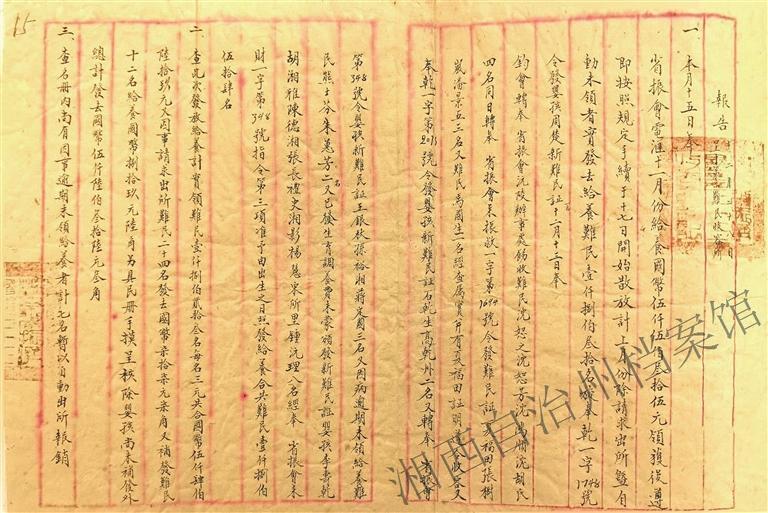 15
報告
十二月二十八日
難民收容所
一 本月十五日奉
省振會電滙十一月份給養國幣伍仟伍伯叁拾伍元領獲後遵
即按照規定手續于十七日開始散放計上月份除請求出所暨自
動未領者實發去給養難民壹仟捌伯叁拾名奉乾一字1748號
令發嬰孩周楚新難民証十一月十三日奉
鈞會轉奉 省振會沅陵辦事處飭收難民沈恕之沈恕芳沈 沈胡氏
四名同日轉奉 省振會未振收一字第1694號令發難民証 福田張樹
嵐潘景五三名又難民馬國生一名經 屬實并有 福田証明 收 又
奉乾一字第2011號令發嬰孩新難民証石乾生高乾外二名又轉奉 省振會
第348號令嬰孩新難民証王銀枚孫裕湘蔣定國三名又因病逾期未領給養難
民熊士芬朱蕙芳二名又已發生育調金費未蒙頒發新難民証嬰孩李壽乾
胡湘雅陳德湘張長禮史湘影楊 里鍾沅理八名經奉 省振會未
財一字第348號指令第三項准予由出生之日照發給養合共難民壹仟捌伯
伍拾肆名
二 查此次發放給養計實領難民壹仟捌伯貳拾叁名每名三元共合國幣伍仟肆伯
陸拾玖元又因事請求出所難民二十四名發去國幣柒拾柒元柒角又補發難民
十二名給養國幣捌拾玖元陸角另具民冊手摸呈核除嬰孩尚未補發外
總計發去國幣伍仟陸伯叁拾陸元叁角
三 查名冊內尚有因事逾期未領給養者計七名暫以自動出所報銷
湘西自治州档案馆